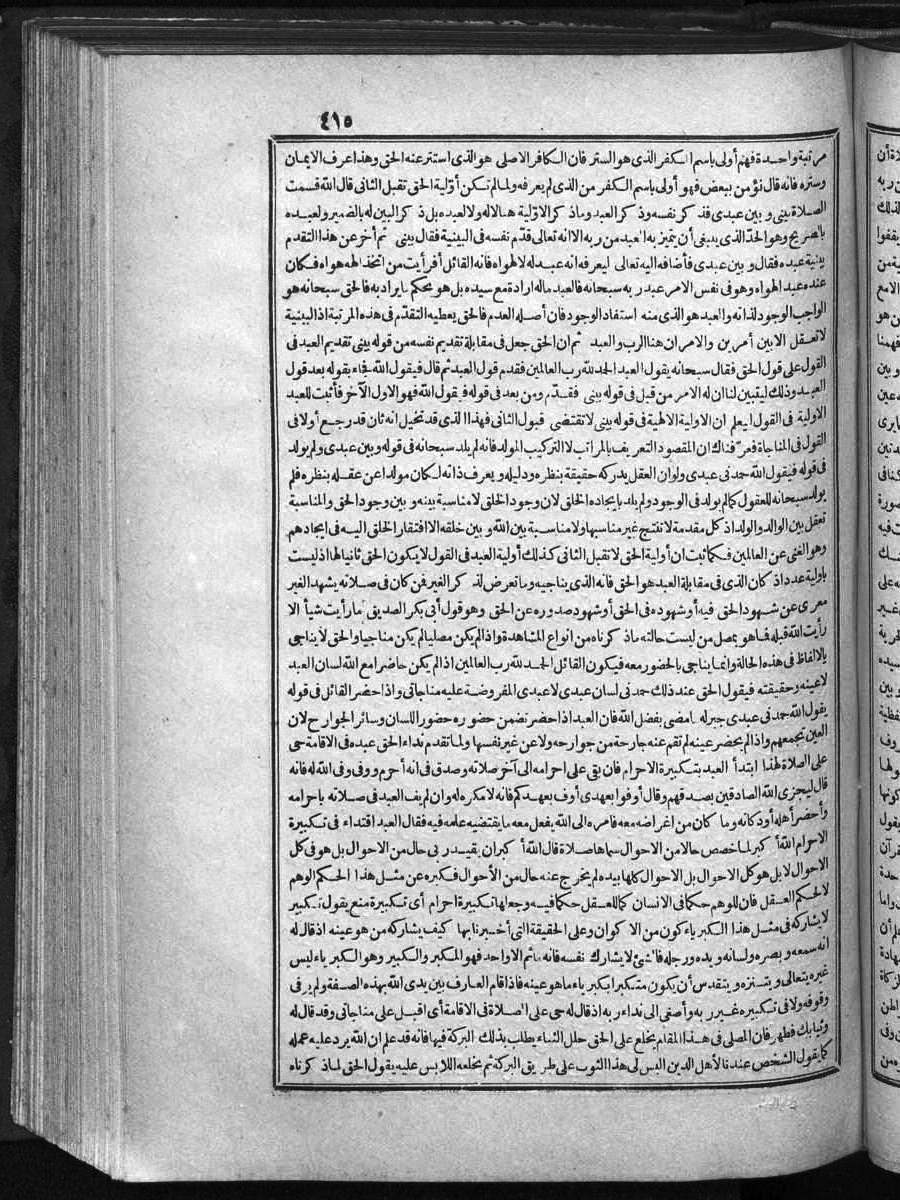 ٤١٥
مرتبة واحدة فهم أولى باسم الكفر الذى هو الستر فان الكافر الاصلى هو الذى استتر عنه الحق وهذا عرف الايمان
وستره فانه قال نؤمن ببعض فهو أولى باسم الكفر من الذى لم يعرفه ولما لم تكن أوّلية الحق تقبل الثانى قال الله قسمت
الصلاة بينى وبين عبدى فذكر نفسه وذكر العبد وما ذكر الاوّلية هنا لا له ولا لعبده بل ذكر البين له بالضمير ولعبده
بالصريح وهو الحدّ الذى ينبغى أن يتميز به العبد من ربه الا انه تعالى قدّم نفسه فى البينية فقال بينى ثم أخر عن هذا التقدم
بينية عبده فقال وبين عبدى فأضافه اليه تعالى ليعرفه انه عبد له لا لهواه فانه القائل أفرأيت من اتخذ الهه هواه فكان
عنده عبد الهواه وهو فى نفس الامر عبد ربه سبحانه فالعبد ماله ارادة مع سيده بل هو بحكم ما يراد به فالحق سبحانه هو
الواجب الوجود لذاته والعبد هو الذى منه استفاد الوجود فان أصله العدم فالحق يعطيه التقدّم فى هذه المرتبة اذ البينية
لا تعقل الا بين أمرين والامران هنا الرب والعبد ثم ان الحق جعل فى مقابلة تقديم نفسه من قوله بينى تقديم العبد فى
القول على قول الحق فقال سبحانه يقول العبد الحمد لله رب العالمين فقدم قول العبد ثم قال فيقول الله فجاء بقوله بعد قول
العبد وذلك ليتبين لنا ان له الامر من قبل فى قوله بينى فقدّم ومن بعد فى قوله فيقول الله فهو الاول الآخر فأثبت للعبد
الاولية فى القول ليعلم ان الاولية الالهية فى قوله بينى لا تقتضى قبول الثانى فهذا الذى قد تخيل انه ثان قد رجع أولا فى
القول فى المناجاة فعرّفناك ان المقصود التعريف بالمراتب لا التركيب المولد فانه لم يلد سبحانه فى قوله وبين عبدى ولم يولد
فى قوله فيقول الله حمدنى عبدى ولو ان العقل يدركه حقيقة بنظره ودليله ويعرف ذاته لكان مولدا عن عقله بنظره فلم
يولد سبحانه للعقول كما لم يولد فى الوجود ولم يلد بايجاده الخلق لان وجود الخلق لا مناسبة بينه وبين وجود الحق والمناسبة
تعقل بين الوالد والولد اذ كل مقدمة لا تنتج غير مناسبها ولا مناسبة بين الله وبين خلقه الا افتقار الخلق اليه فى ايجادهم
وهو الغنى عن العالمين فكما ثبت ان أولية الحق لا تقبل الثانى كذلك أولية العبد فى القول لا يكون الحق ثانيا لها اذ ليست
باولية عدد اذ كان الذى فى مقابلة العبد هو الحق فانه الذى يناجيه وما تعرض لذكر الغير فمن كان فى صلاته يشهد الغير
معرى عن شهود الحق فيه أو شهوده فى الحق أو شهود صدوره عن الحق وهو قول أبى بكر الصديق ما رأيت شيأ الا
رأيت الله قبله فما هو بمصل من ليست حالته ما ذكرناه من انواع المشاهدة واذ لم يكن مصليا لم يكن مناجيا والحق لا يناجى
بالالفاظ فى هذه الحالة وانما يناجى بالحضور معه فيكون القائل الحمد لله رب العالمين اذ لم يكن حاضرا مع الله لسان العبد
لا عينه وحقيقته فيقول الحق عند ذلك حمدنى لسان عبدى لا عبدى المفروضة عليه مناجاتى واذا حضر القائل فى قوله
يقول الله حمدنى عبدى جبر له ما مضى بفضل الله فان العبد اذا حضر تضمن حضوره حضور اللسان وسائر الجوارح لان
العين تجمعهم واذا لم يحضر عينه لم تقم عنه جارحة من جوارحه ولا عن غير نفسها ولما تقدم نداء الحق عبده فى الاقامة حى
على الصلاة لهذا ابتدأ العبد بتكبيرة الاحرام فان بقى على احرامه الى آخر صلاته وصدق فى انه أحرم ووفى وفى الله له فانه
قال ليجزى الله الصادقين بصدقهم وقال أوفوا بعهدى أوف بعهدكم فانه لا مكره له وان لم يف العبد فى صلاته باحرامه
وأحضر أهله أو دكانه وما كان من اغراضه معه فامره الى الله يفعل معه ما يقتضيه علمه فيه فقال العبد اقتداء فى تكبيرة
الاحرام الله أكبر لما خصص حالا من الاحوال سماها صلاة قال الله أكبر ان يقيد ربى حال من الاحوال بل هو فى كل
الاحوال لا بل هو كل الاحوال بل الاحوال كلها بيده لم يخرج عنه حال من الأحوال فكبره عن مثل هذا الحكم الوهم
لا لحكم العقل فان للوهم حكما فى الانسان كما للعقل حكما فيه وجعلها تكبيرة احرام أى تكبيرة منع يقول تكبير
لا يشاركه فى مثل هذا الكبرياء كون من الاكوان وعلى الحقيقة التى أخبرنا بها كيف يشاركه من هو عينه اذ قال له
انه سمعه وبصره ولسانه ويده ورجله فالشئ لا يشارك نفسه فانه ما ثم الا واحد فهو المكبر والكبير وهو الكبرياء ليس
غيره يتعالى ويتنزه ويتقدس أن يكون متكبرا بكبرياء ما هو عينه فاذا قام العارف بين يدى الله بهذه الصفة ولم ير فى
وقوفه ولا فى تكبيره غير ربه وأصغى الى نداء ربه اذ قال له حى على الصلاة فى الاقامة أى اقبل على مناجاتى وقد قال له
وثيابك فطهر فان المصلى فى هذا المقام يخلع على الحق حلل الثناء يطلب بذلك البركة فيها فانه قد علم ان الله يرد عليه عمله
كما يقول الشخص عندنا لأهل الدين البس لى هذا الثوب على طريق البركة ثم يخلعه اللابس عليه يقول الحق لما ذكرناه